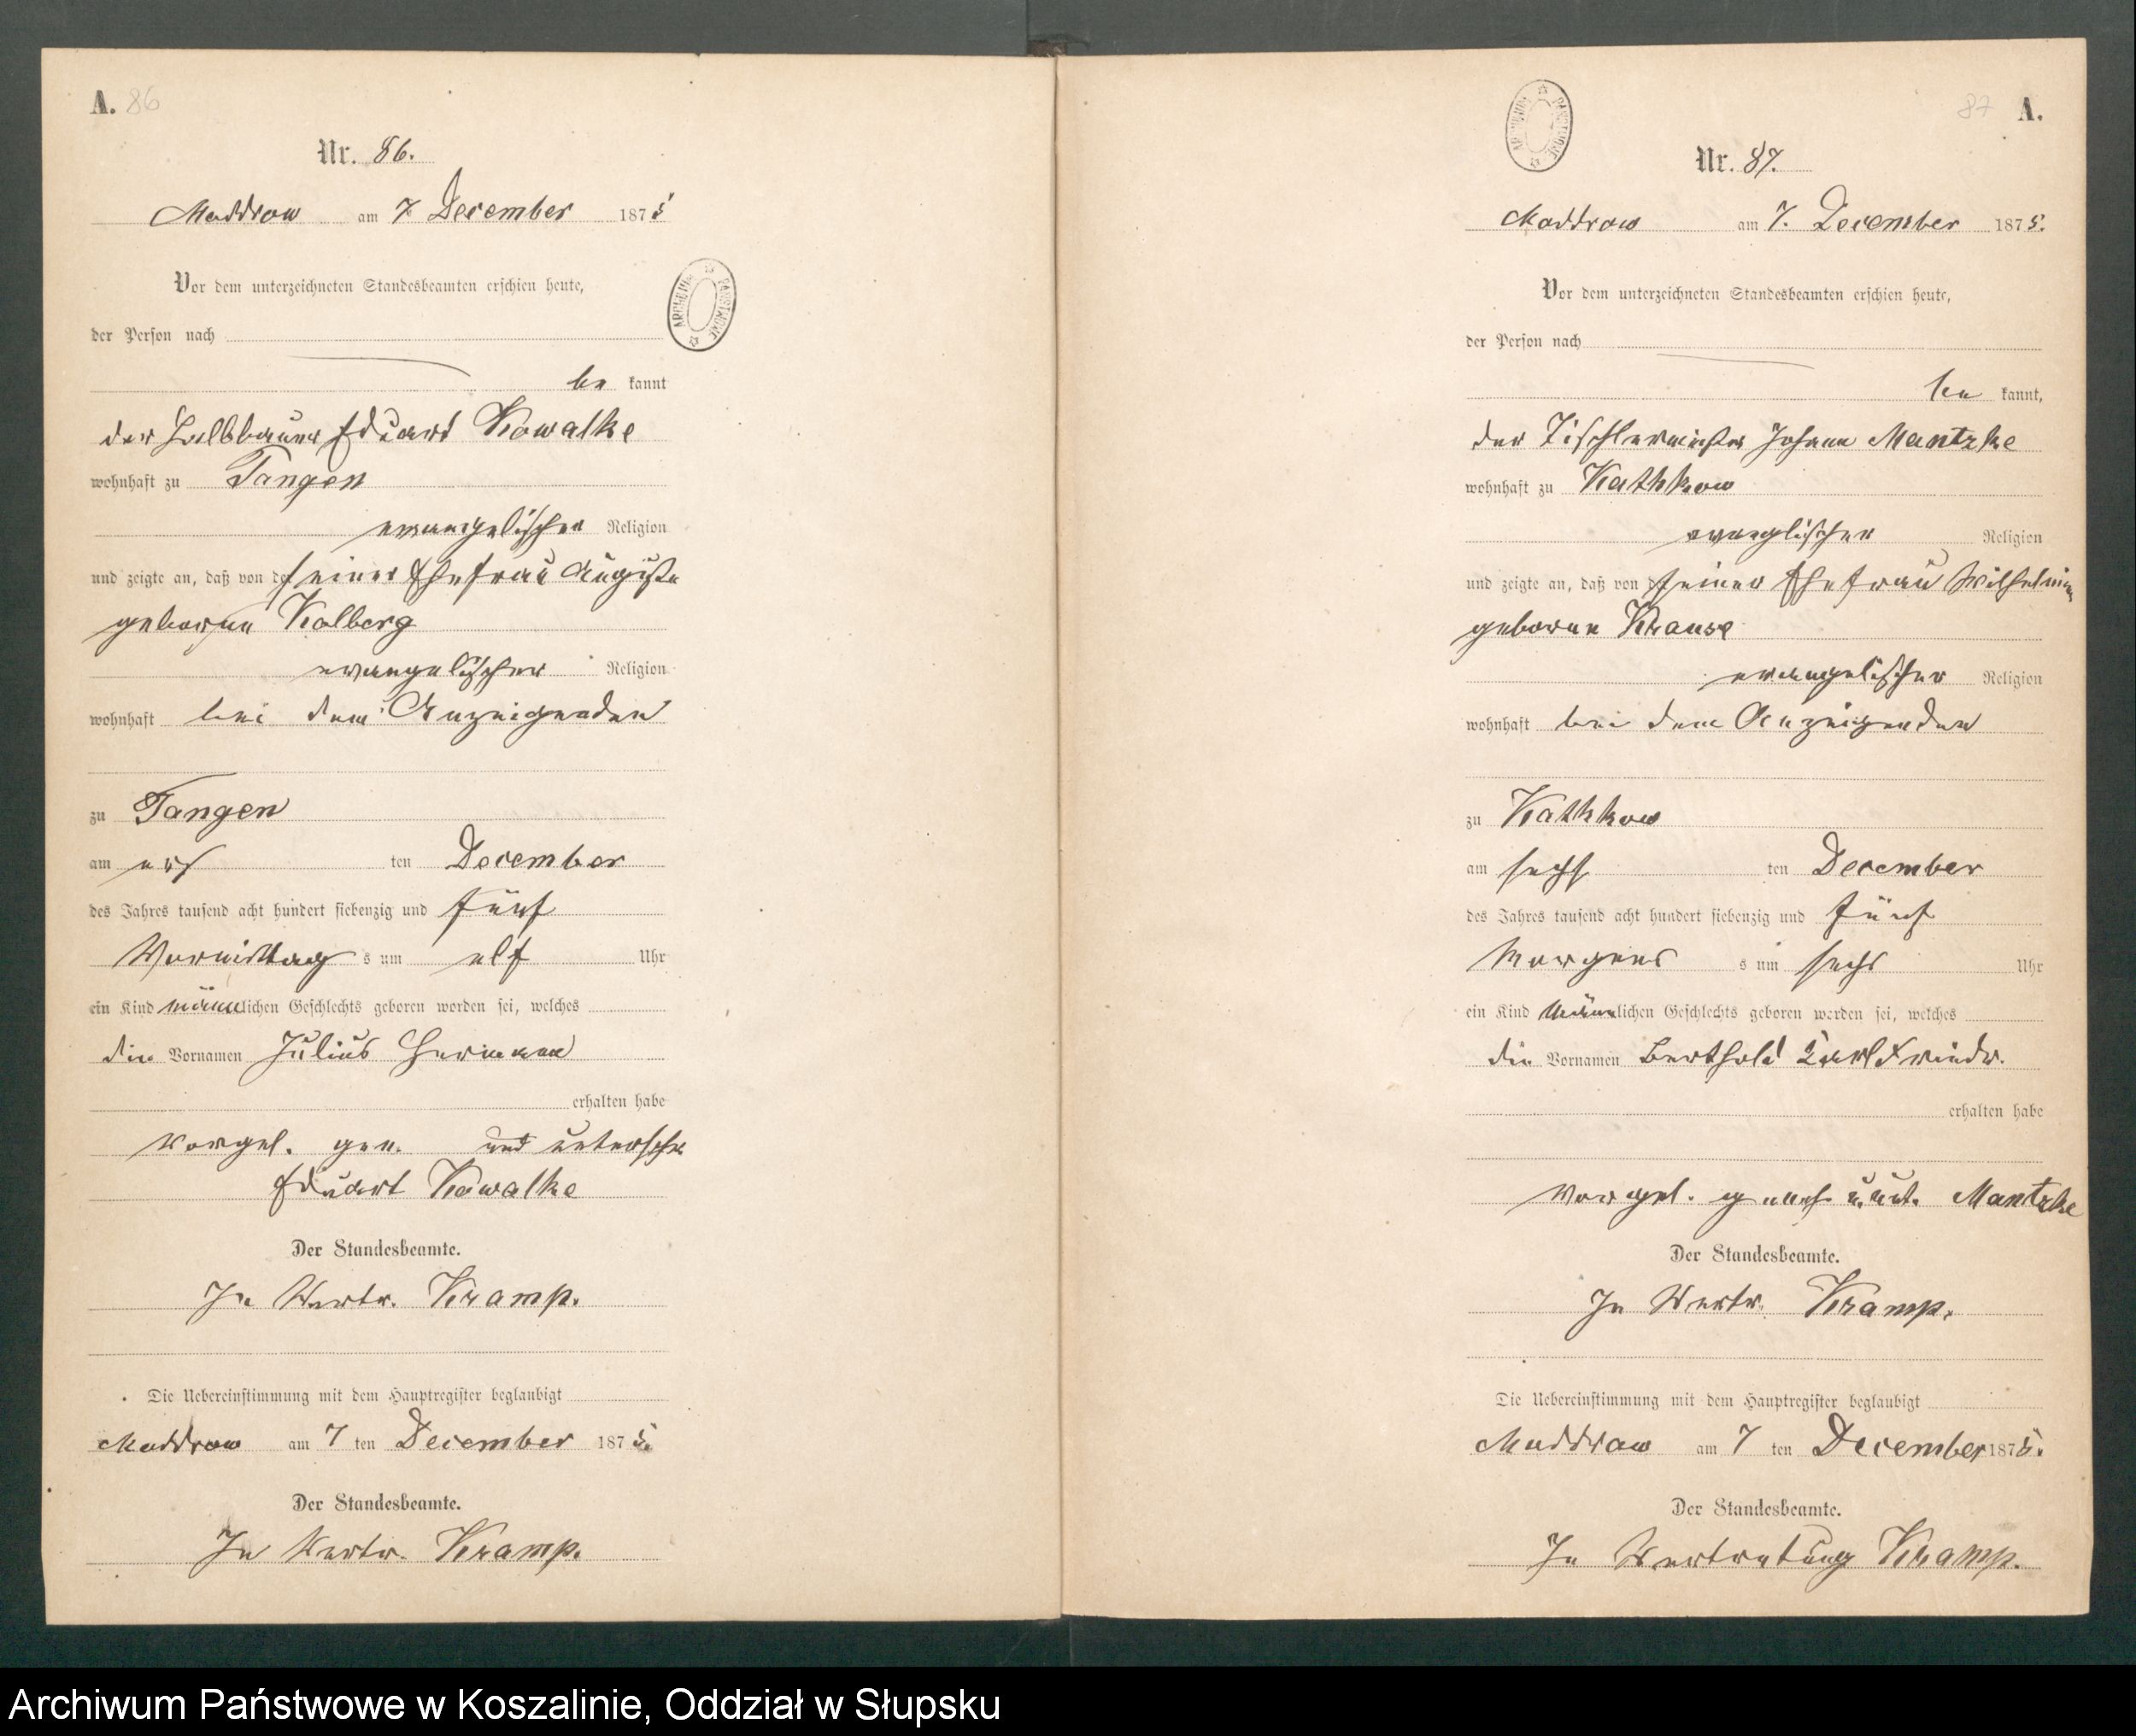 A. 86
Nr. 86.
Moddrow am 7 December 1875
Vor dem unterzeichneten Standesbeamten erschien heute,
der Person nach
be kannt
der Halbbauer Eduart Kowalke
wohnhaft zu Tangen
evangelischer Religion
und zeigte an, daß von der seiner Ehefrau Auguste
geborene Kolberg
evangelischer Religion
wohnhaft bei dem Anzeigenden
zu Tangen
am ten December
des Jahres tausend acht hundert siebenzig und fünf
Vormittag s um elf Uhr
ein Kind männlichen Geschlechts geboren worden sei, welches
die Vornamen Julius Hermann
erhalten habe
Vorgel. gen. und unterschr.
Eduart Kowalke
Der Standesbeamte.
In Vertr. Kramp.
Die Uebereinstimmung mit dem Hauptregister beglaubigt
Moddrow am 7 ten December 1875.
Der Standesbeamte.
In Vertr. Kramp.
ARCHIWUM PAŃSTWOWE
87 A.
Nr. 87.
Moddrow am 7. December 1875.
Vor dem unterzeichneten Standesbeamten erschien heute,
der Person nach
be kannt,
der Tischlermeister Johann Mantzke
wohnhaft zu Kathkow
evanglischer Religion
und zeigte an, daß von der seiner Ehefrau Wilhelmine
geborene Krause
evangelischer Religion
wohnhaft bei dem Anzeigenden
zu Kathkow
am sechs ten December
des Jahres tausend acht hundert siebenzig und fünf
Morgens s um sechs Uhr
ein Kind männlichen Geschlechts geboren worden sei, welches
die Vornamen Berthold Carl Friedr.
erhalten habe
Vorgel. geneh. u. unt. Mantzke
Der Standesbeamte.
In Vertr. Kramp.
Die Uebereinstimmung mit dem Hauptregister beglaubigt
Moddrow am 7 ten December 1875.
Der Standesbeamte.
In Vertretung Kramp.
ARCHIWUM PAŃSTWOWE
Archiwum Państwowe w Koszalinie, Oddział w Słupsku